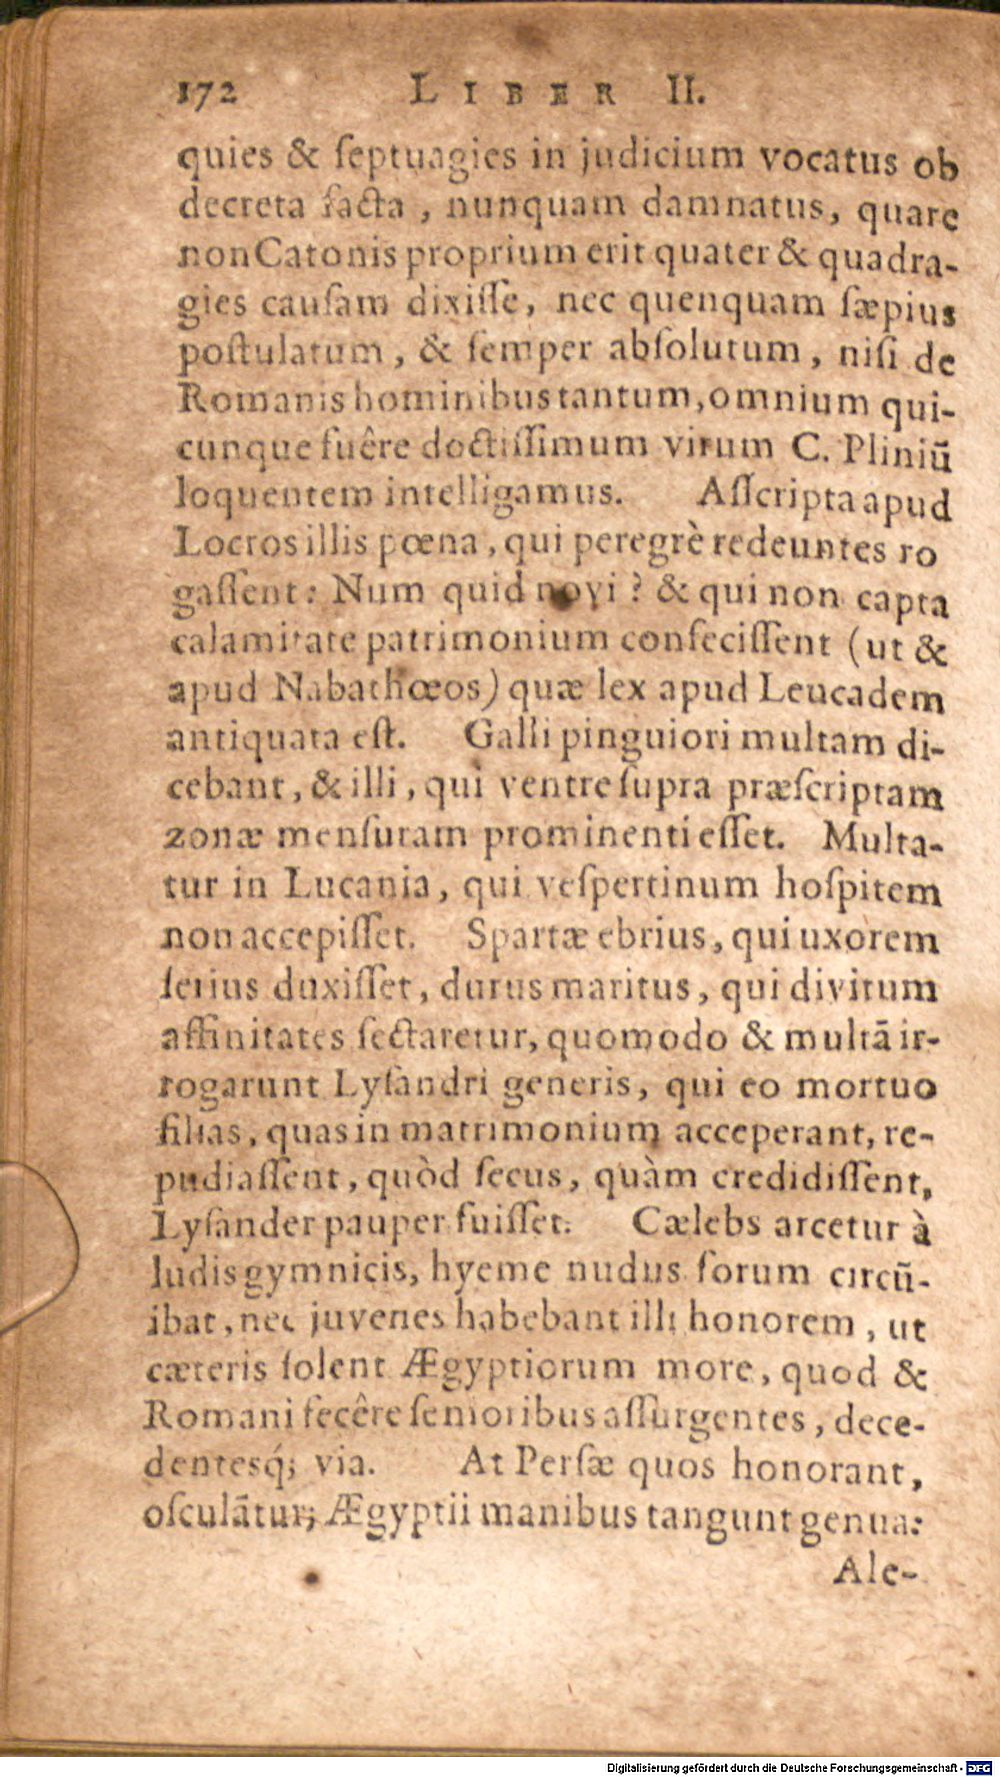 172 LIBER II.
quies & ſeptuagies in judicium vocatus ob
decreta facta, nunquam damnatus, quare
non Catonis proprium erit quater & quadra-
gies cauſam dixiſſe, nec quenquam ſæpius
poſtulatum, & ſemper abſolutum, niſi de
Romanis hominibus tantum, omnium qui-
cunque fuêre doctiſſimum virum C. Pliniū
loquentem intelligamus. Aſſcripta apud
Locros illis pœna, qui peregrè redeuntes ro
gaſſent: Num quid novi? & qui non capta
calamitate patrimonium confeciſſent (ut &
apud Nabathœos) quæ lex apud Leucadem
antiquata eſt. Galli pinguiori multam di-
cebant, & illi, qui ventre ſupra præſcriptam
zonæ menſuram prominenti eſſet. Multa-
tur in Lucania, qui veſpertinum hoſpitem
non accepiſſet. Spartæ ebrius, qui uxorem
ſerius duxiſſet, durus maritus, qui divitum
affinitates ſectaretur, quomodo & multā ir-
rogarunt Lyſandri generis, qui eo mortuo
filias, quas in matrimonium acceperant, re-
pudiaſſent, quòd ſecus, quàm credidiſſent,
Lyſander pauper fuiſſet. Cælebs arcetur à
ludis gymnicis, hyeme nudus forum circū-
ibat, nec juvenes habebant illi honorem, ut
cæteris ſolent Ægyptiorum more, quod &
Romani fecêre ſenioribus aſſurgentes, dece-
dentesq́; via. At Perſæ quos honorant,
oſculātur; Ægyptii manibus tangunt genua:
Ale-
Digitalisierung gefördert durch die Deutsche Forschungsgemeinschaft - DFG